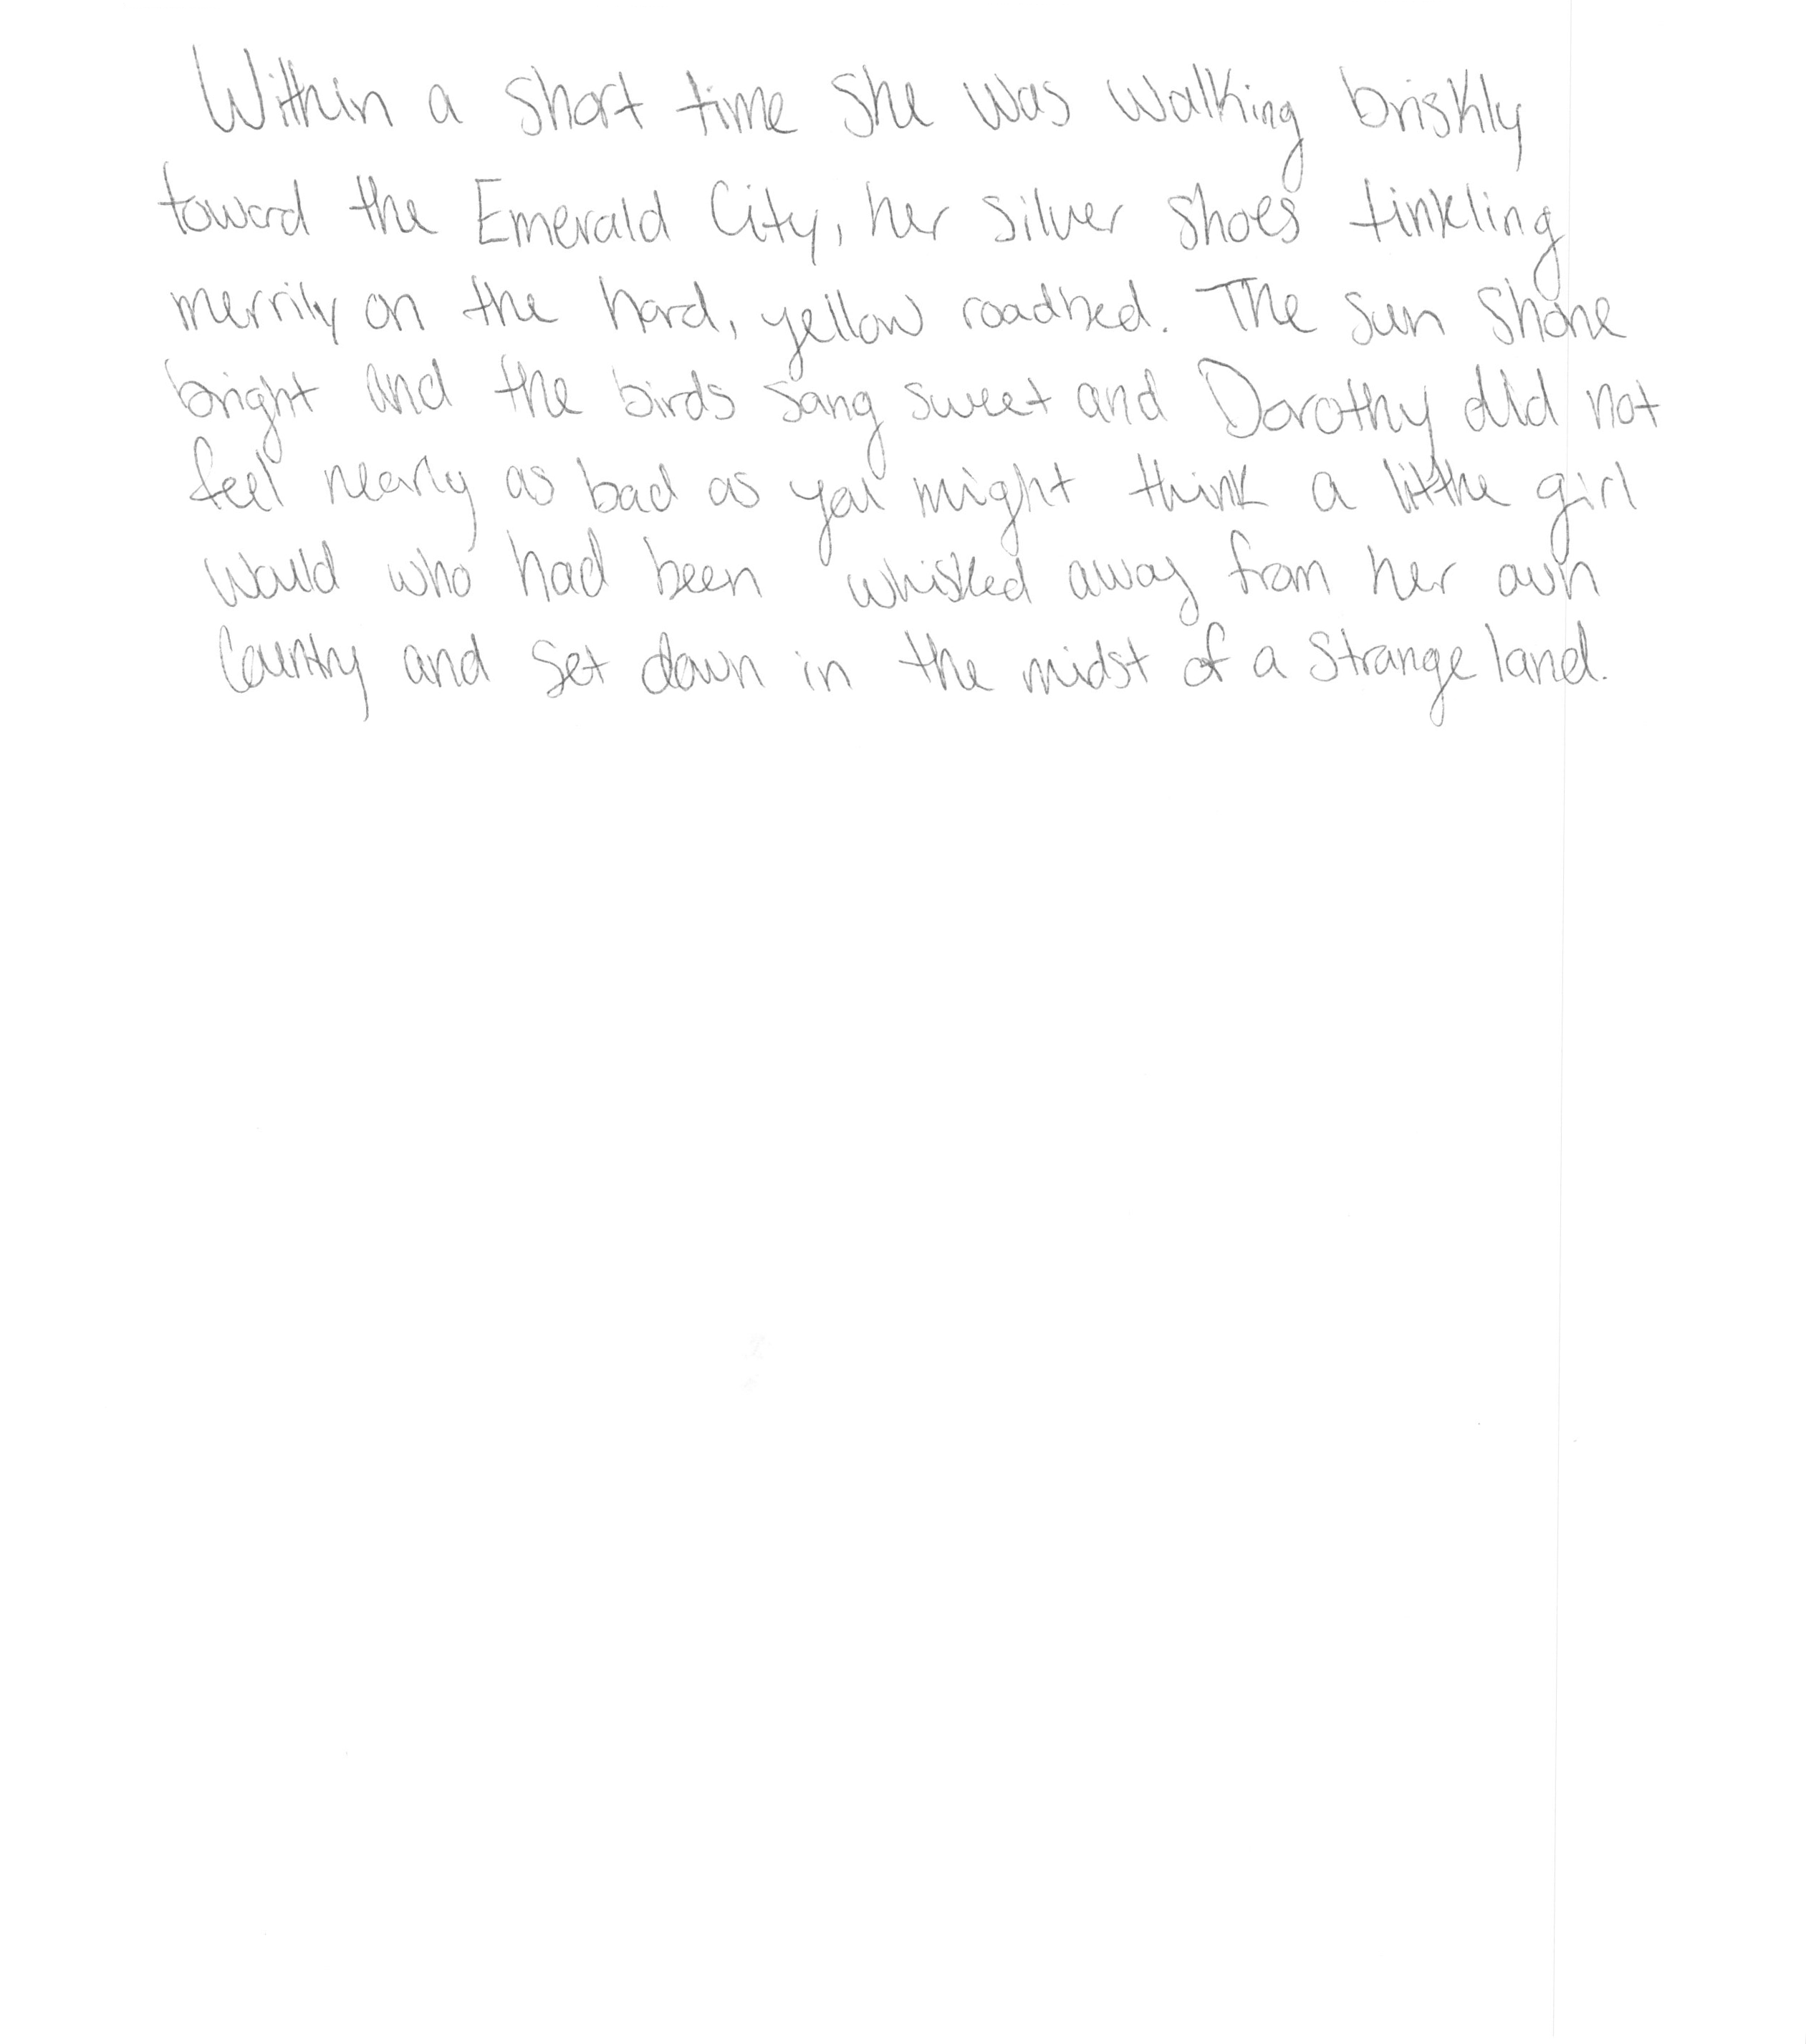 Within a short time she was walking briskly
toward the Emerald City, her silver shoes tinkling
merrily on the hard, yellow roadbed. The sun shone
bright and the birds sang sweet and Dorothy did not
feel nearly as bad as you might think a little girl
would who had been whisked away from her own
country and set down in the midst of a strange land.